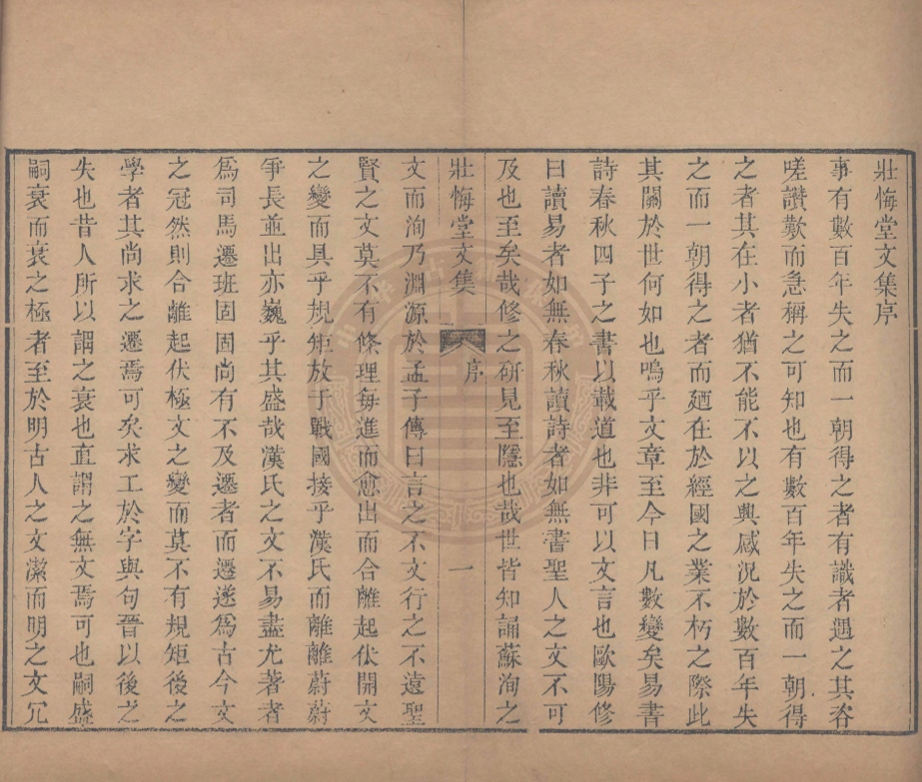 壯悔堂文集序
事有數百年失之而一朝得之者有識者遇之其咨
嗟讚歎而急稱之可知也有數百年失之而一朝得
之者其在小者猶不能不以之興感況於數百年失
之而一朝得之者而廼在於經國之業不朽之際此
其關於世何如也嗚乎文章至今日凡數變矣易書
詩春秋四子之書以載道也非可以文言也歐陽修
曰讀易者如無春秋讀詩者如無書聖人之文不可
及也至矣哉修之研見至隱也哉世皆知誦蘇洵之
壯悔堂文集 序 一
文而洵乃淵源於孟子傳曰言之不文行之不遠聖
賢之文莫不有條理每進而愈出而合離起伏開文
之變而具乎規矩放于戰國接乎漢氏而離離蔚蔚
爭長並出亦巍乎其盛哉漢氏之文不易盡尤著者
爲司馬遷班固固尚有不及遷者而遷遂爲古今文
之冠然則合離起伏極文之變而莫不有規矩後之
學者其尚求之遷焉可矣求工於字與句晉以後之
失也昔人所以謂之衰也直謂之無文焉可也嗣盛
嗣衰而衰之極者至於明古人之文潔而明之文冗